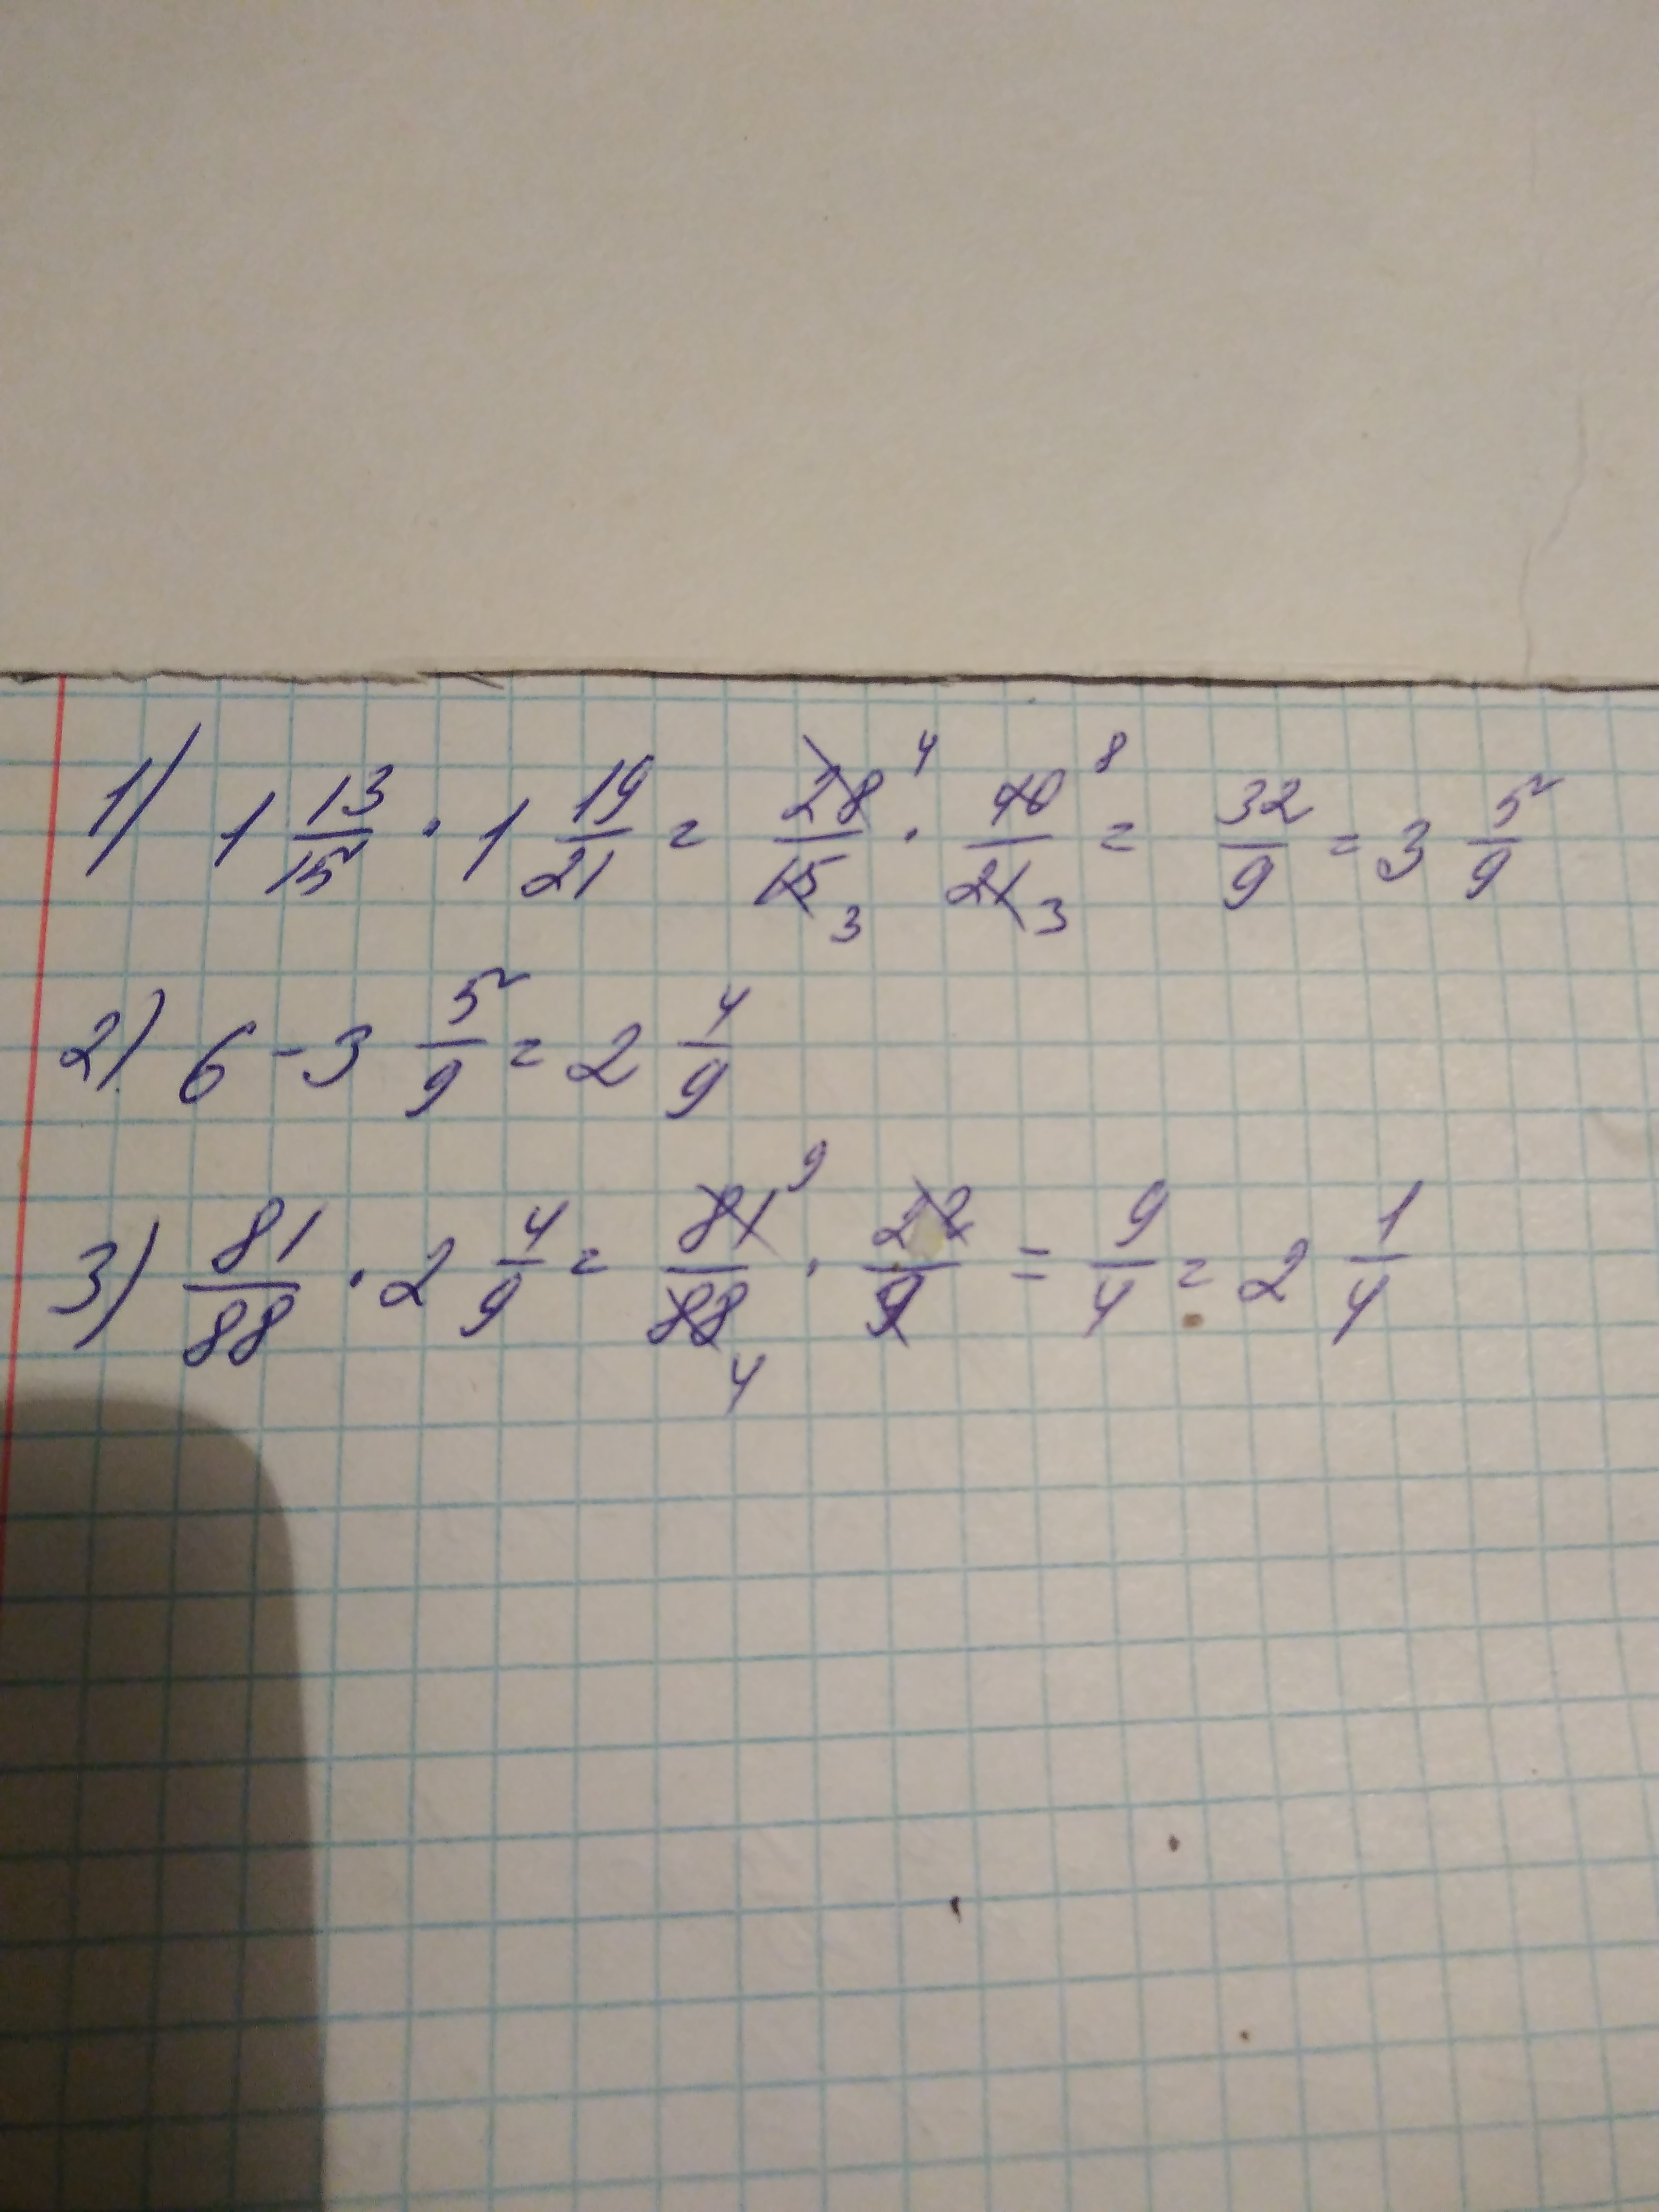 1) 1 13/15 · 1 19/21 = 28/15 4 3 · 40/21 8 3 = 32/9 = 3 5/9
2) 6 - 3 5/9 = 2 4/9
3) 81/88 · 2 4/9 = 81/88 9 4 · 22/9 = 9/4 = 2 1/4